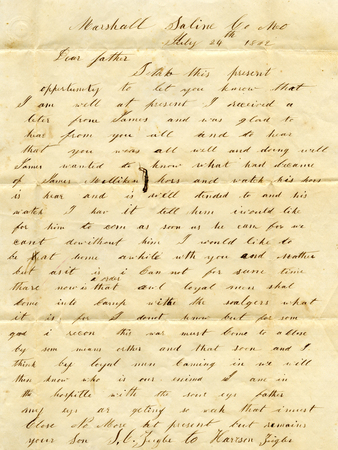 Marshall Saline Co Mo
July 24th 1862
Dear father
I take this present
opportunity to let you know that
I am well at present I received a
leter from James and was glad to
hear from you all and to hear
that you was all well and doing well
James wanted to know what had became
of James Milliken hors and watch his hors
is hear and is well tended to and his
watch I hav it tell him i would like
for him to com as soon as he can for we
cant dowithout him I would like to
be at home awhile with you and Mother
but as it is i Can not for some time
thare now is a order that all loyal men shal
come into Camp with the soalgers what
it is for I donot know but for som
god i recon this war must Come to a close
by som means orther and that soon and I
think by loyal men Caming in we will
then know who is our enemd I am in
the hospittle with the sore eys father
my eys ar geting so weak that i must
Close No More at present but remains
your Son to Harrson